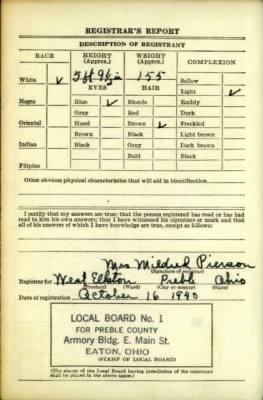 REGISTRAR'S REPORT
DESCRIPTION OF REGISTRANT
RACE HEIGHT (Approx.) WEIGHT (Approx.) COMPLEXION
White ✓ 5 ft 9½ in 155 Sallow
EYES HAIR Light ✓
Negro Blue ✓ Blonde Ruddy
Gray Red Dark
Oriental Hazel Brown ✓ Freckled
Brown Black Light brown
Indian Black Gray Dark brown
Bald Black
Filipino
Other obvious physical characteristics that will aid in identification
I certify that my answers are true; that the person registered has read or has had
read to him his own answers; that I have witnessed his signature or mark and that
all of his answers of which I have knowledge are true, except as follows:
Mrs Mildred Pierson
(Signature of registrar)
Registrar for West Elkton Preble Ohio
(Precinct) (Ward) (City or county) (State)
Date of registration October 16 1940
LOCAL BOARD No. 1
FOR PREBLE COUNTY
Armory Bldg. E. Main St.
EATON, OHIO
(STAMP OF LOCAL BOARD)
(The stamp of the Local Board having jurisdiction of the registrant
shall be placed in the above space.)